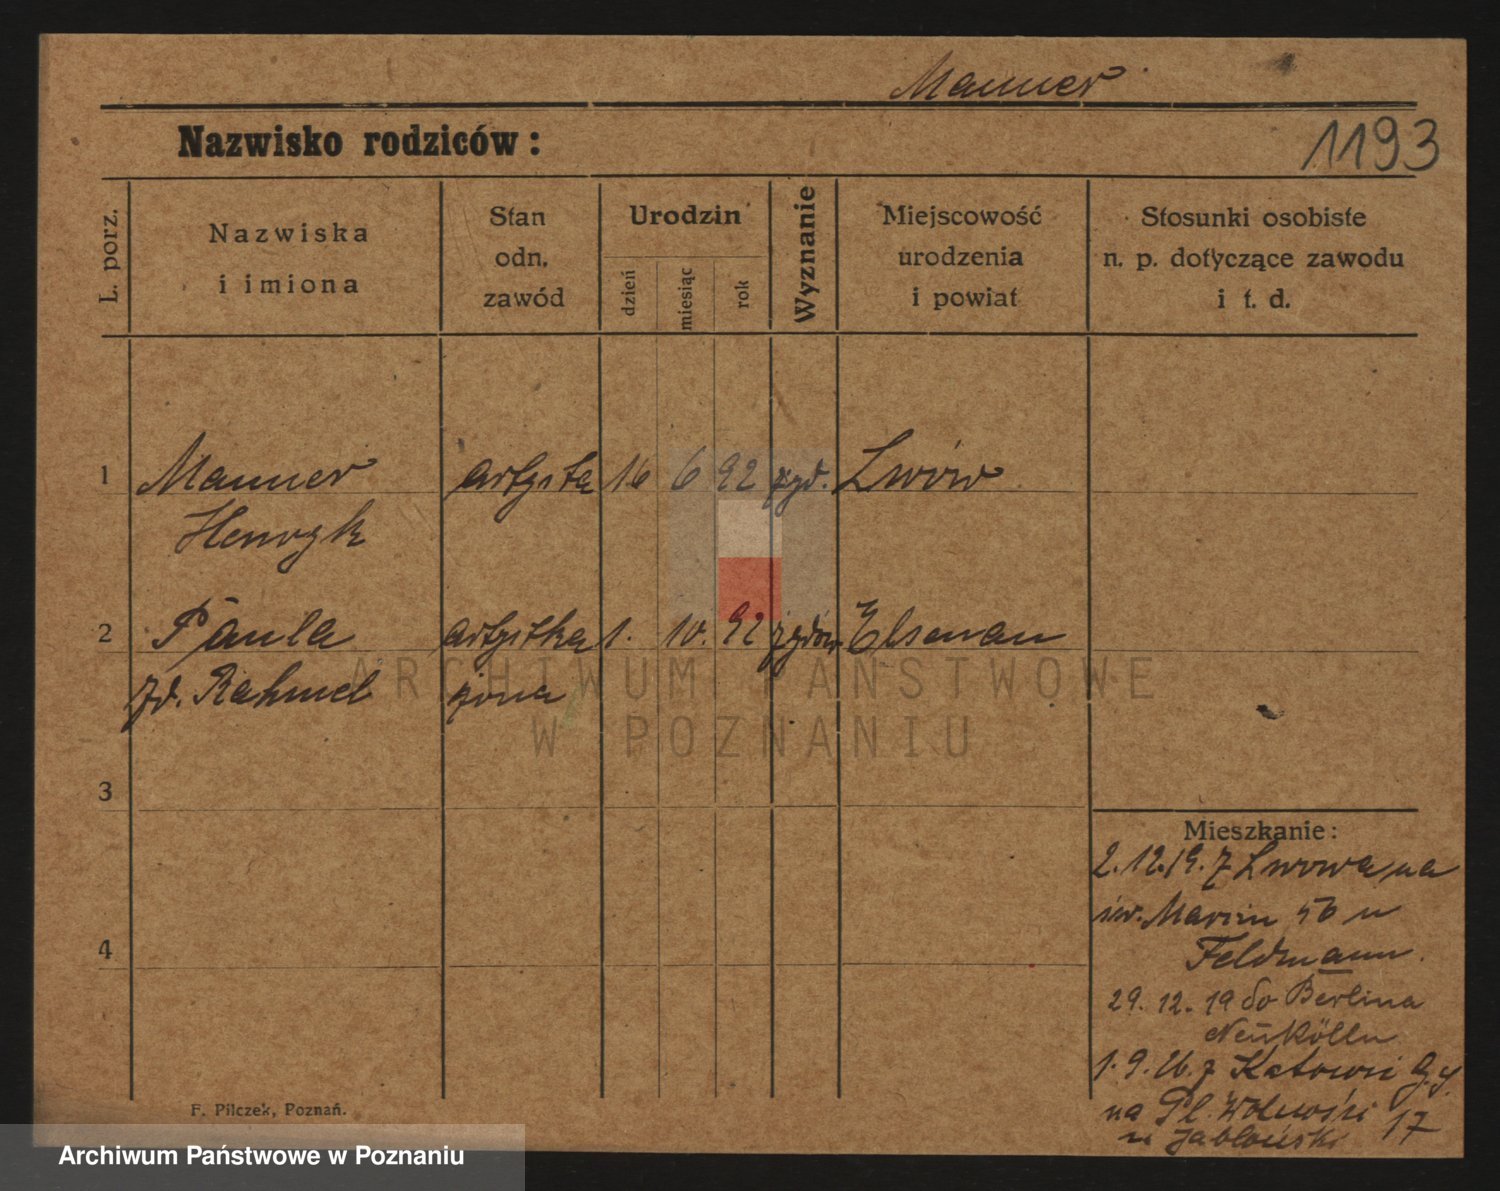 Manner
Nazwisko rodziców:
1193
L. porz.
Nazwiska
i imiona
Stan
odn.
zawód
Urodzin
dzień
miesiąc
rok
Wyznanie
Miejscowość
urodzenia
i powiat
Stosunki osobiste
n. p. dotyczące zawodu
i t. d.
1 Manner artysta 16 6 92 żyd. Lwów
Henryk
2 Paula artystka 1. 10. 92 żydow Elsenau
zd. Rahmel żona
ARCHIWUM PAŃSTWOWE
W POZNANIU
3
Mieszkanie:
2.12.19. z Lwowa na
św. Marcin 56 u
4
Feldmann.
29. 12. 19 do Berlina
Neukölln
1.9.26. z Katowic
na Pl. Wolności 17
u Jabłoński
F. Pilczek, Poznań.
Archiwum Państwowe w Poznaniu